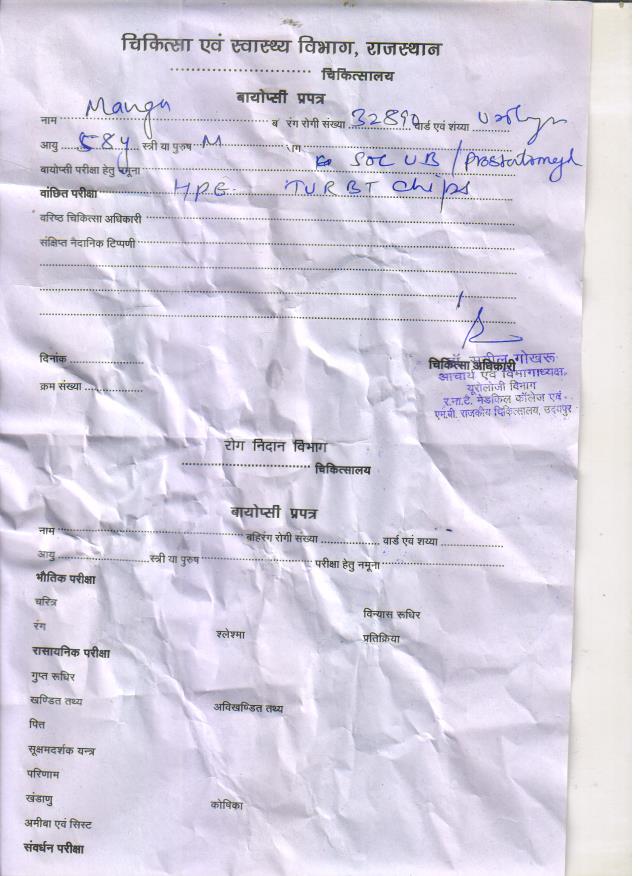 चिकित्सा एवं स्वास्थ्य विभाग, राजस्थान
चिकित्सालय
बायोप्सी प्रपत्र
नाम Manga ब रंग रोगी संख्या 32890 वार्ड एवं शय्या
आयु 58y स्त्री या पुरुष M SOL UB /
बायोप्सी परीक्षा हेतु नमूना
वांछित परीक्षा HPE TURBT chips
वरिष्ठ चिकित्सा अधिकारी
संक्षिप्त नैदानिक टिप्पणी
दिनांक
चिकित्सा अधिकारी
गोखरू
आचार्य एवं विभागाध्यक्ष
क्रम संख्या
यूरोलोजी विभाग
र.ना.टे. मेडकिल कॉलेज एवं
एम.बी. राजकीय चिकित्सालय, उदयपुर
रोग निदान विभाग
चिकित्सालय
बायोप्सी प्रपत्र
नाम बहिरंग रोगी संख्या वार्ड एवं शय्या
आयु स्त्री या पुरुष परीक्षा हेतु नमूना
भौतिक परीक्षा
चरित्र विन्यास रूधिर
रंग श्लेश्मा प्रतिक्रिया
रासायनिक परीक्षा
गुप्त रूधिर
खण्डित तथ्य अविखण्डित तथ्य
पित्त
सूक्षमदर्शक यन्त्र
परिणाम
खंडाणु कोषिका
अमीबा एवं सिस्ट
संवर्धन परीक्षा